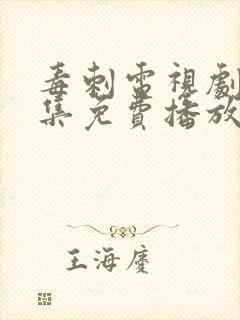 毒刺雷視劇
集免費播放
王海慶